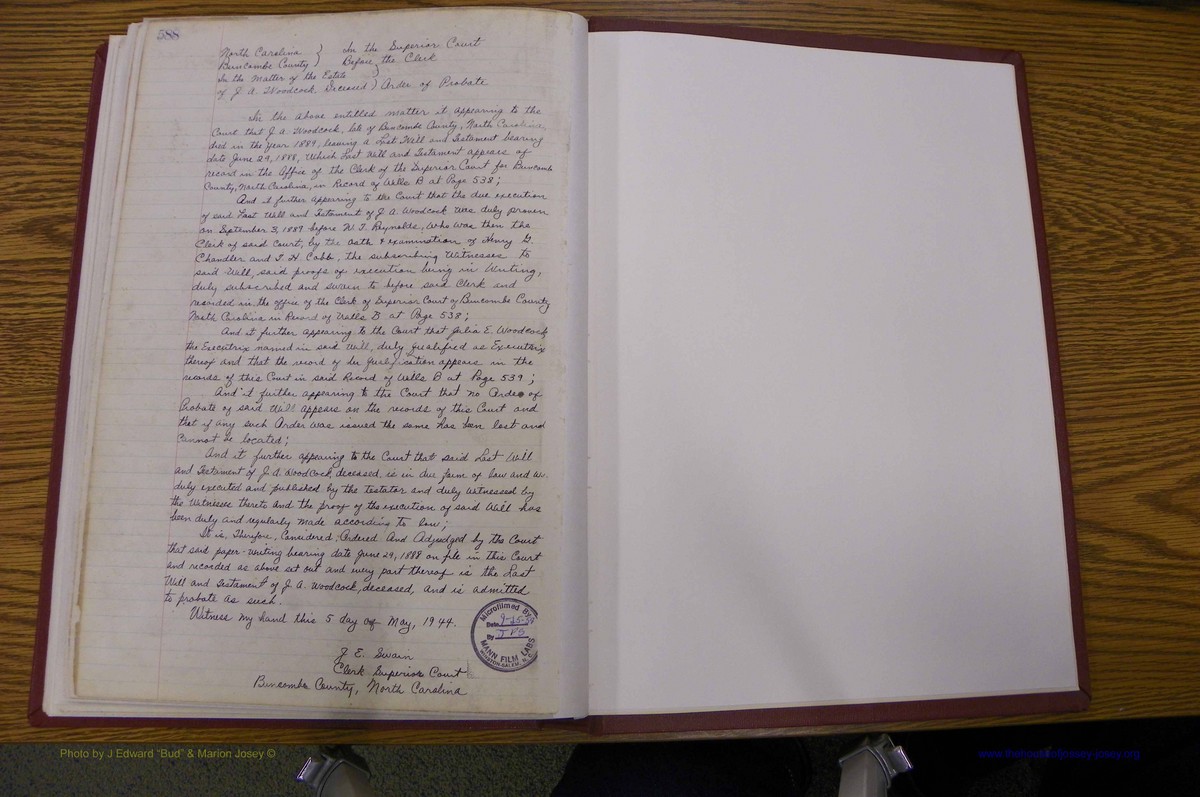 588
North Carolina } In the Superior Court
Buncombe County } Before the Clerk
In the Matter of the Estate )
of J. A. Woodcock, Deceased ) Order of Probate
In the above entitled matter it appearing to the
Court that J. A. Woodcock, late of Buncombe County, North Carolina,
died in the year 1889, leaving a Last Will and Testament bearing
date June 29, 1888, Which Last Will and Testament appears of
record in the Office of the Clerk of the Superior Court for Buncombe
County, North Carolina, in Record of Wills B at Page 538;
And it further appearing to the Court that the due execution
of said Last Will and Testament of J. A. Woodcock was duly proven
on September 3, 1889 before W. T. Reynolds, Who was then the
Clerk of said Court, by the oath & examination of Henry G.
Chandler and T. H. Cobb, the subscribing Witnesses to
said Will, said proofs of execution being in Writing,
duly subscribed and swain to before said Clerk and
recorded in the office of the Clerk of Superior Court of Buncombe County
North Carolina in Record of Wills B at Page 538;
And it further appearing to the Court that Julia E. Woodcock,
the Executrix named in said Will, duly qualified as Executrix
thereof and that the record of her qualification appears in the
records of this Court in said Record of Wills B at Page 539;
And it further appearing to the Court that no Order of
Probate of said Will appears on the records of this Court and
that if any such Order was issued the same has been lost and
cannot be located;
And it further appearing to the Court that said Last Will
and Testament of J. A. Woodcock, deceased, is in due form of law and
duly executed and published by the testator and duly witnessed by
the Witnesses thereto and the proof of the execution of said Will has
been duly and regularly made according to law;
It is, Therefore, Considered, Ordered And Adjudged by the Court
that said paper-writing bearing date June 29, 1888 on file in this Court
and recorded as above set out and every part thereof is the Last
Will and Testament of J. A. Woodcock, deceased, and is admitted
to probate as such.
Witness my hand this 5 day of May, 1944.
J. E. Swain
Clerk Superior Court
Buncombe County, North Carolina
Microfilmed By
Date
By
MANN FILM LABS
WINSTON-SALEM, N.C.
Photo by J Edward "Bud" & Marion Josey ©